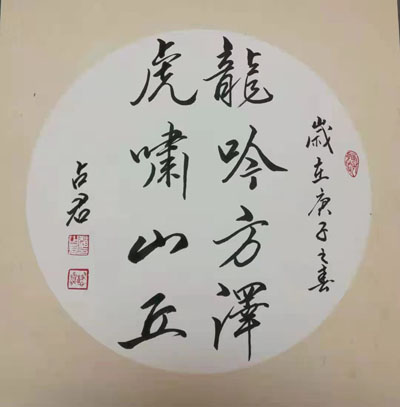 歲在庚子之春
龍吟方澤
虎嘯山丘
占君